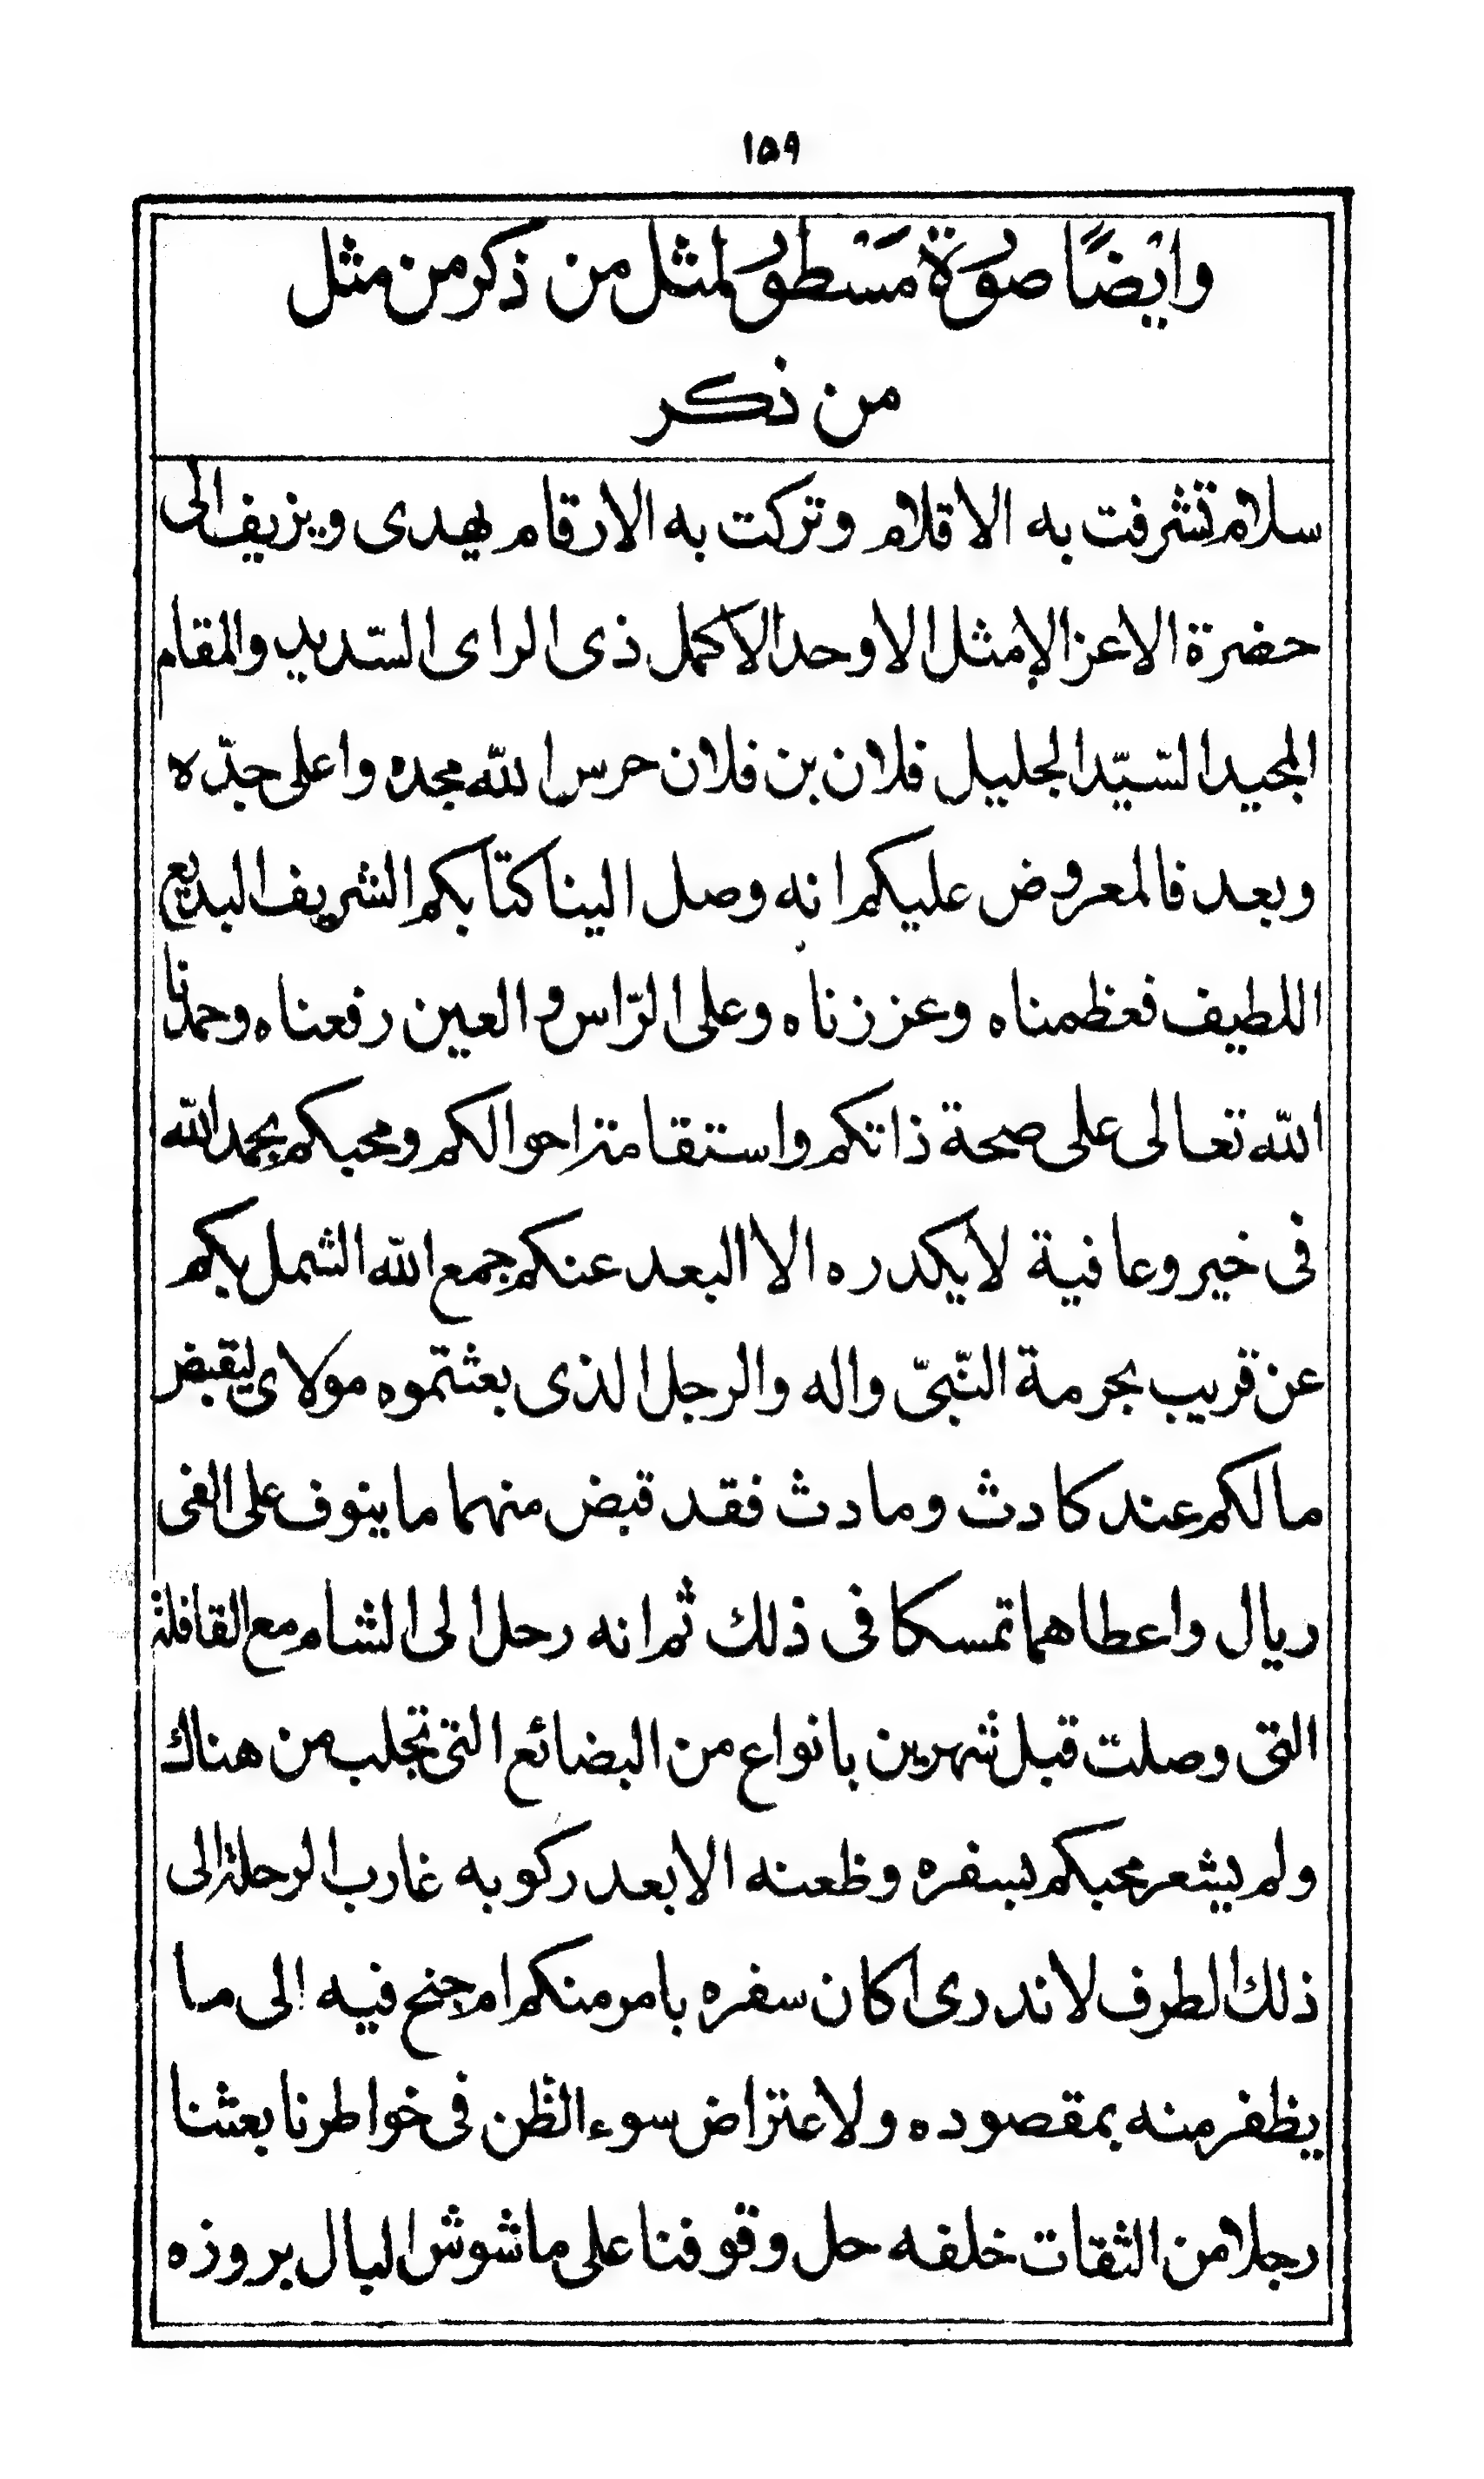 ١٥٩
وايْضًا صُوْرَة مَسْطوُر لمثل من ذكر من مثل
من ذكر
سلام تشرفت به الاقلام وتركت به الارقام يهدى ويزيف الى
حضرة الاعز الامثل الاوحد الاكمل ذى الراى السّديد والمقام
المجيد السّيّد الجليل فلان بن فلان حرس الله مجده واعلى جدّه
وبعد فالمعروض عليكم انه وصل الينا كتابكم الشريف البديع
اللطيف فعظمناه وعززناه وعلى الرّاس والعين رفعناه وحمدنا
الله تعالى على صحة ذاتكم واستقامة احوالكم ومحبكم بحمد الله
فى خير وعافية لا يكدره الا البعد عنكم جمع الله الشمل بكم
عن قريب بحرمة النّبىّ واله والرجل الذى بعثتموه مولاى ليقبض
مالكم عند كادث ومادث فقد قبض منهما ما ينوف على الفى
ريال واعطاهما تمسكا فى ذلك ثم انه رحل الى الشام مع القافلة
التى وصلت قبل شهرين بانواع من البضائع التى تجلب من هناك
ولم يشعر محبكم بسفره وظعنه الا بعد ركوبه غارب الرحلة الى
ذلك الطرف لا ندرى اكان سفره بامر منكم ام جنح فيه الى ما
يظفر منه بمقصوده ولاعتراض سوء الظّن فى خواطرنا بعثنا
رجلا من الثقات خلفه حل وقوفنا على ما شوش البال بروزه